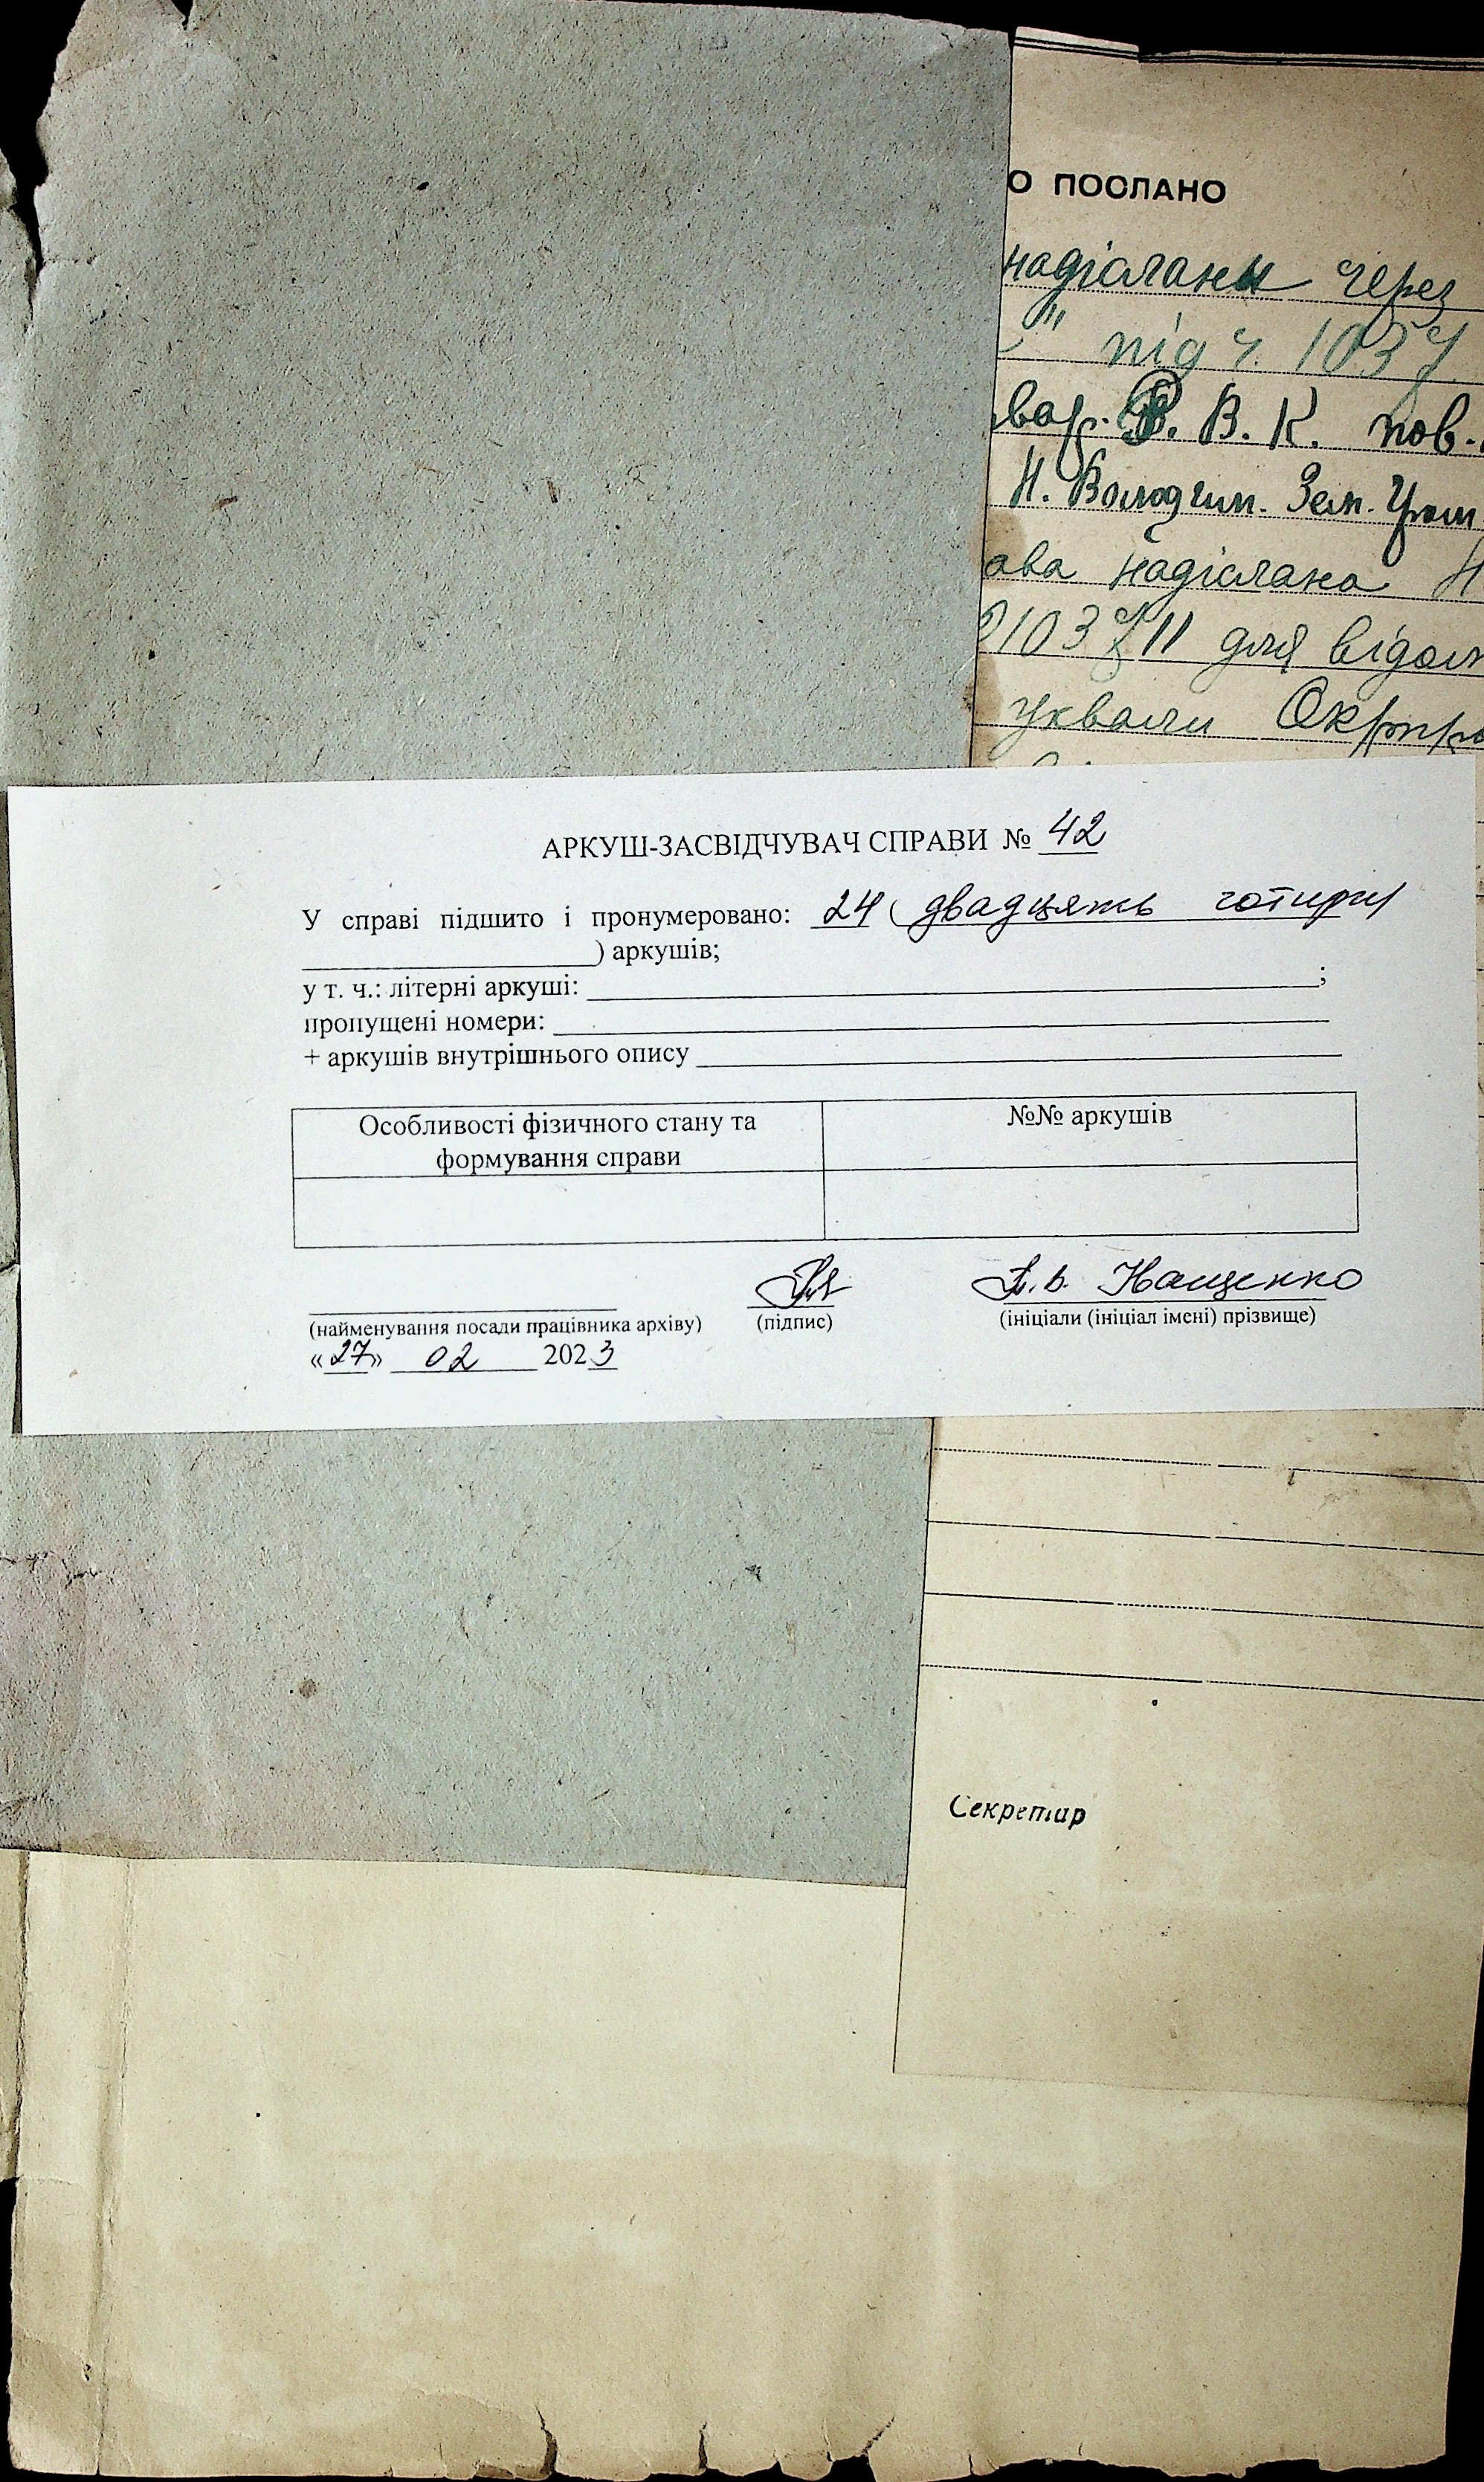 О ПОСЛАНО
надіслани через
" під ч. 1037
вар. Р. В. К. пов.
Н. Володим. Зем. Гром
ава надіслана Н
для відом
ухвали
АРКУШ-ЗАСВІДЧУВАЧ СПРАВИ № 42
У справі підшито і пронумеровано: 24 ( двадцять чотири
) аркушів;
у т. ч.: літерні аркуші: ;
пропущені номери:
+ аркушів внутрішнього опису
Особливості фізичного стану та
формування справи
№№ аркушів
(найменування посади працівника архіву) (підпис) (ініціали (ініціал імені) прізвище)
«27» 02 2023
Секретар